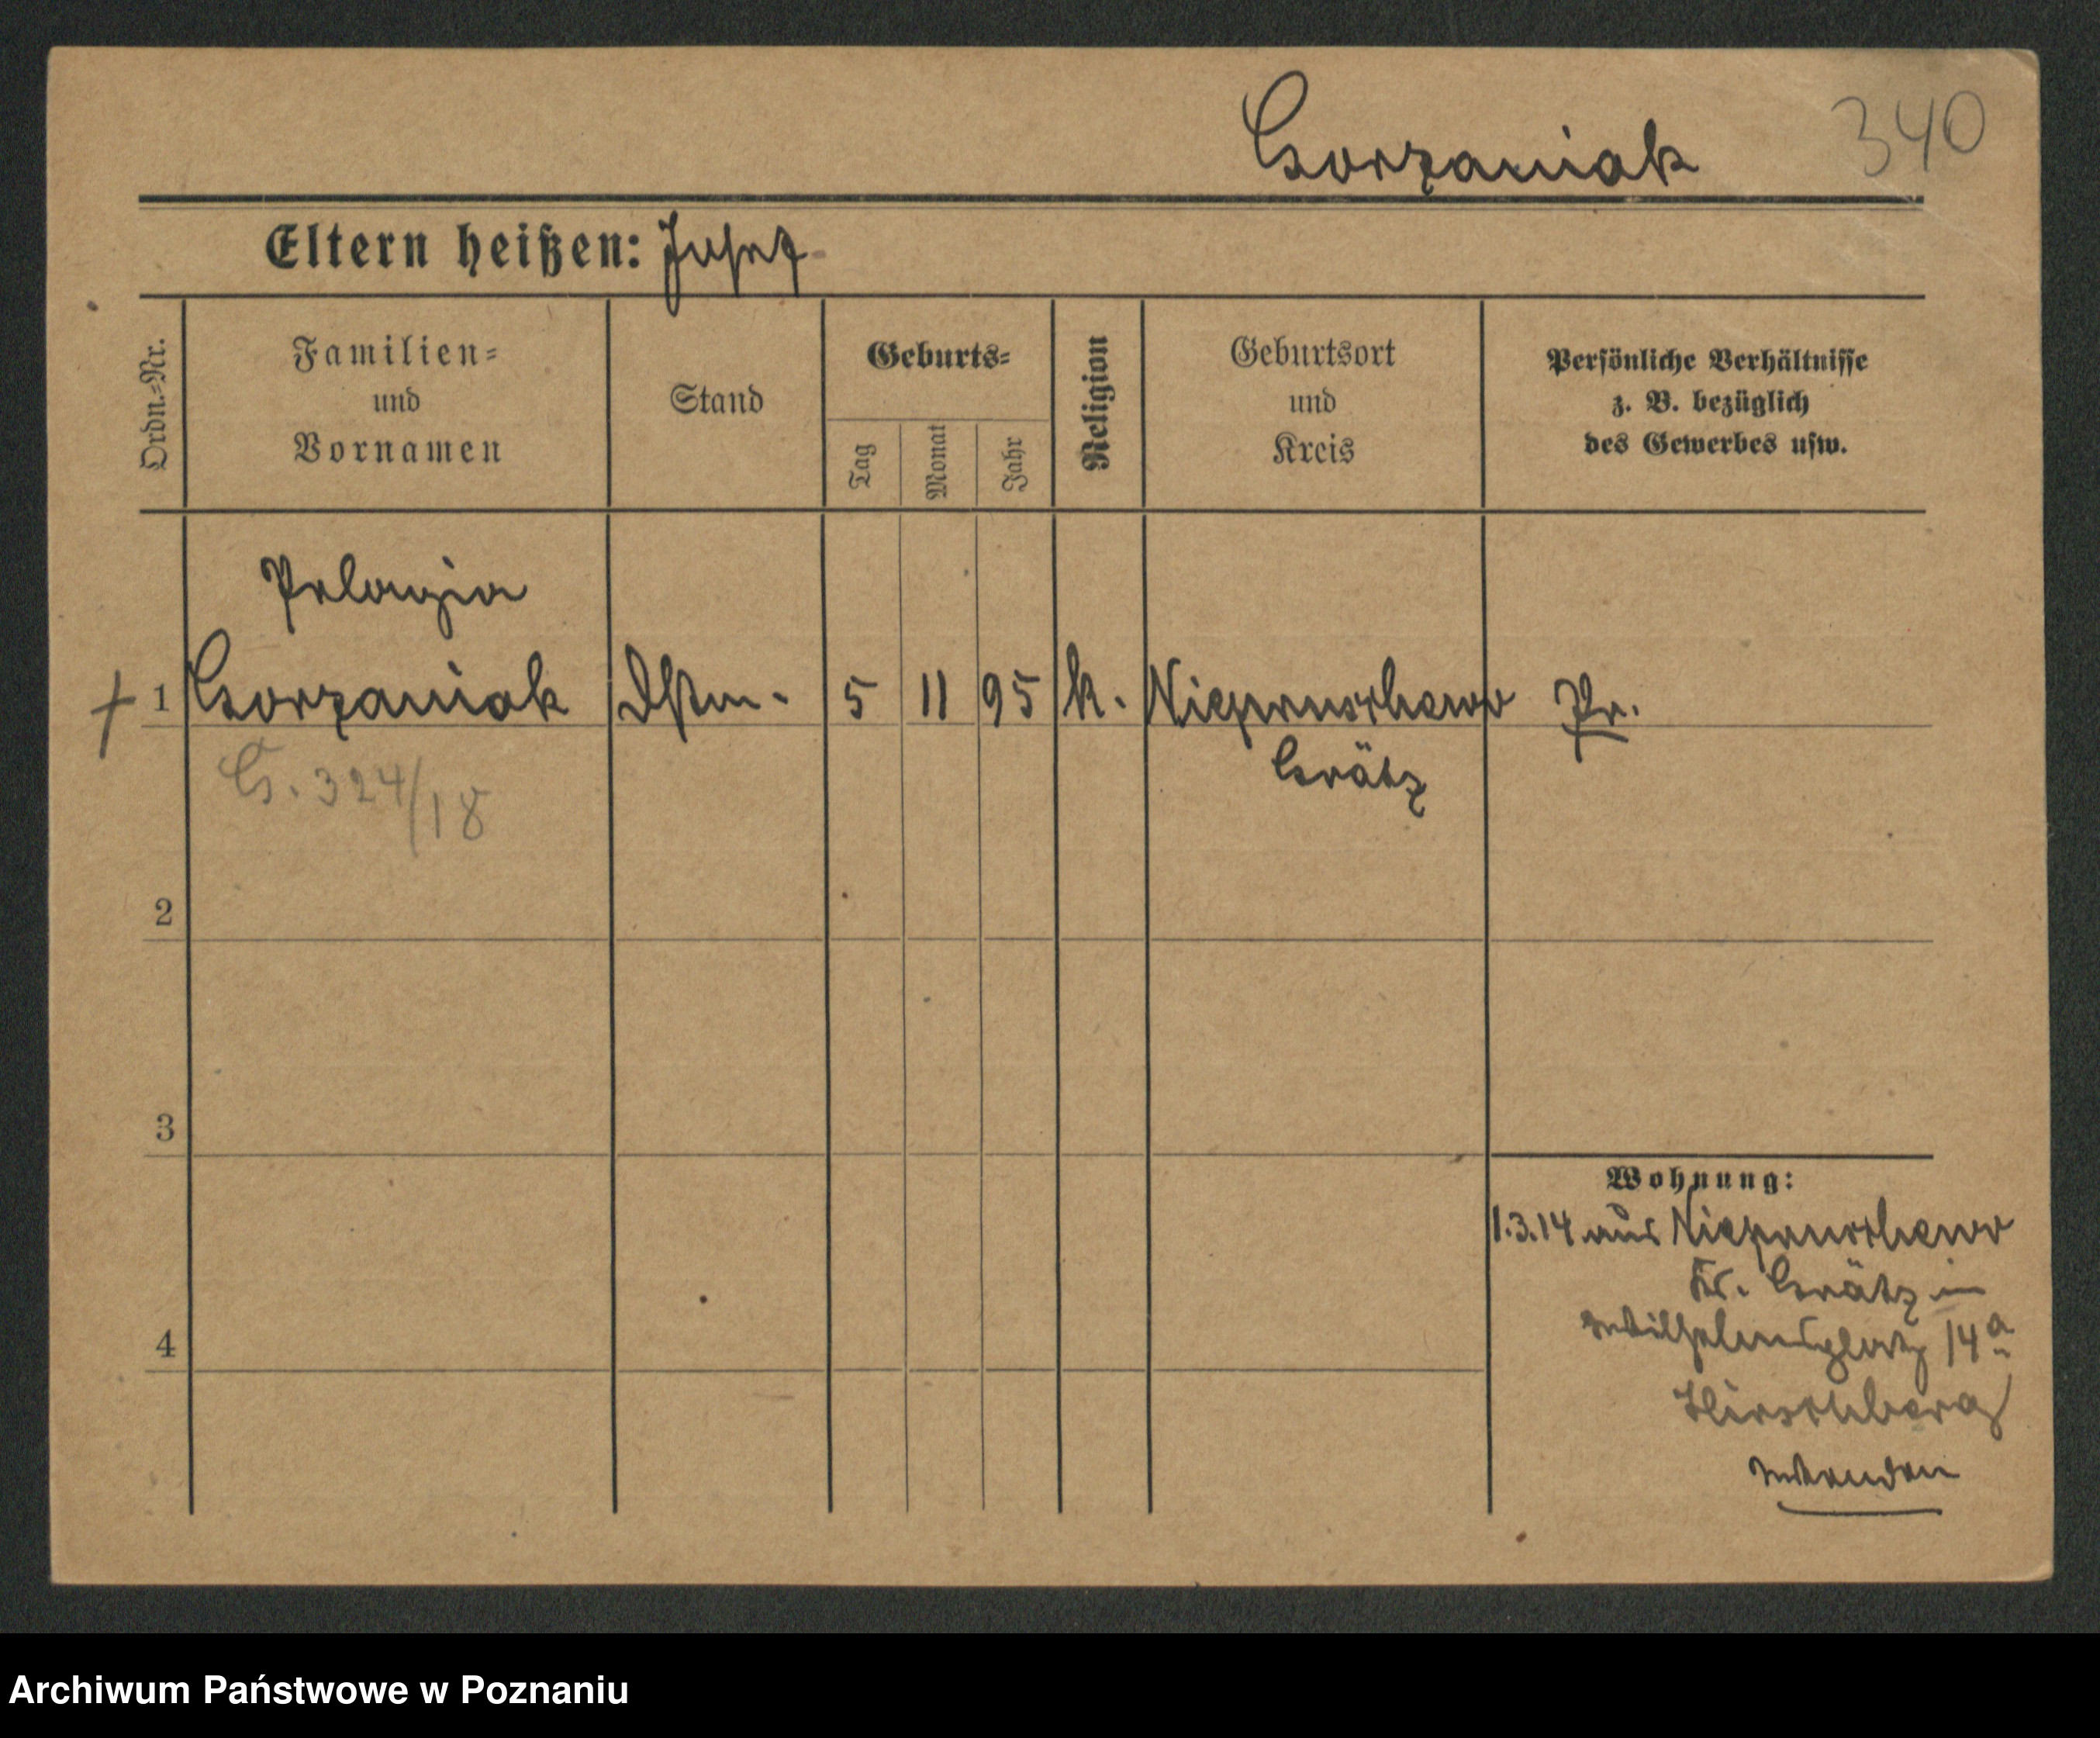 Gorzaniak
340
Eltern heißen: Josef
Ordn.-Nr.
Familien-
und
Vornamen
Stand
Geburts-
Tag
Monat
Jahr
Religion
Geburtsort
und
Kreis
Persönliche Verhältnisse
z. B. bezüglich
des Gewerbes usw.
Pelagia
† 1 Gorzaniak Dstm. 5 11 95 k. Niepruschewo Pr.
Grätz
G. 324/18
2
3
4
Wohnung:
1.3.14 aus Niepruschewo
Kr. Grätz in
Wilhelmsplatz 14a
Hirschberg
Archiwum Państwowe w Poznaniu